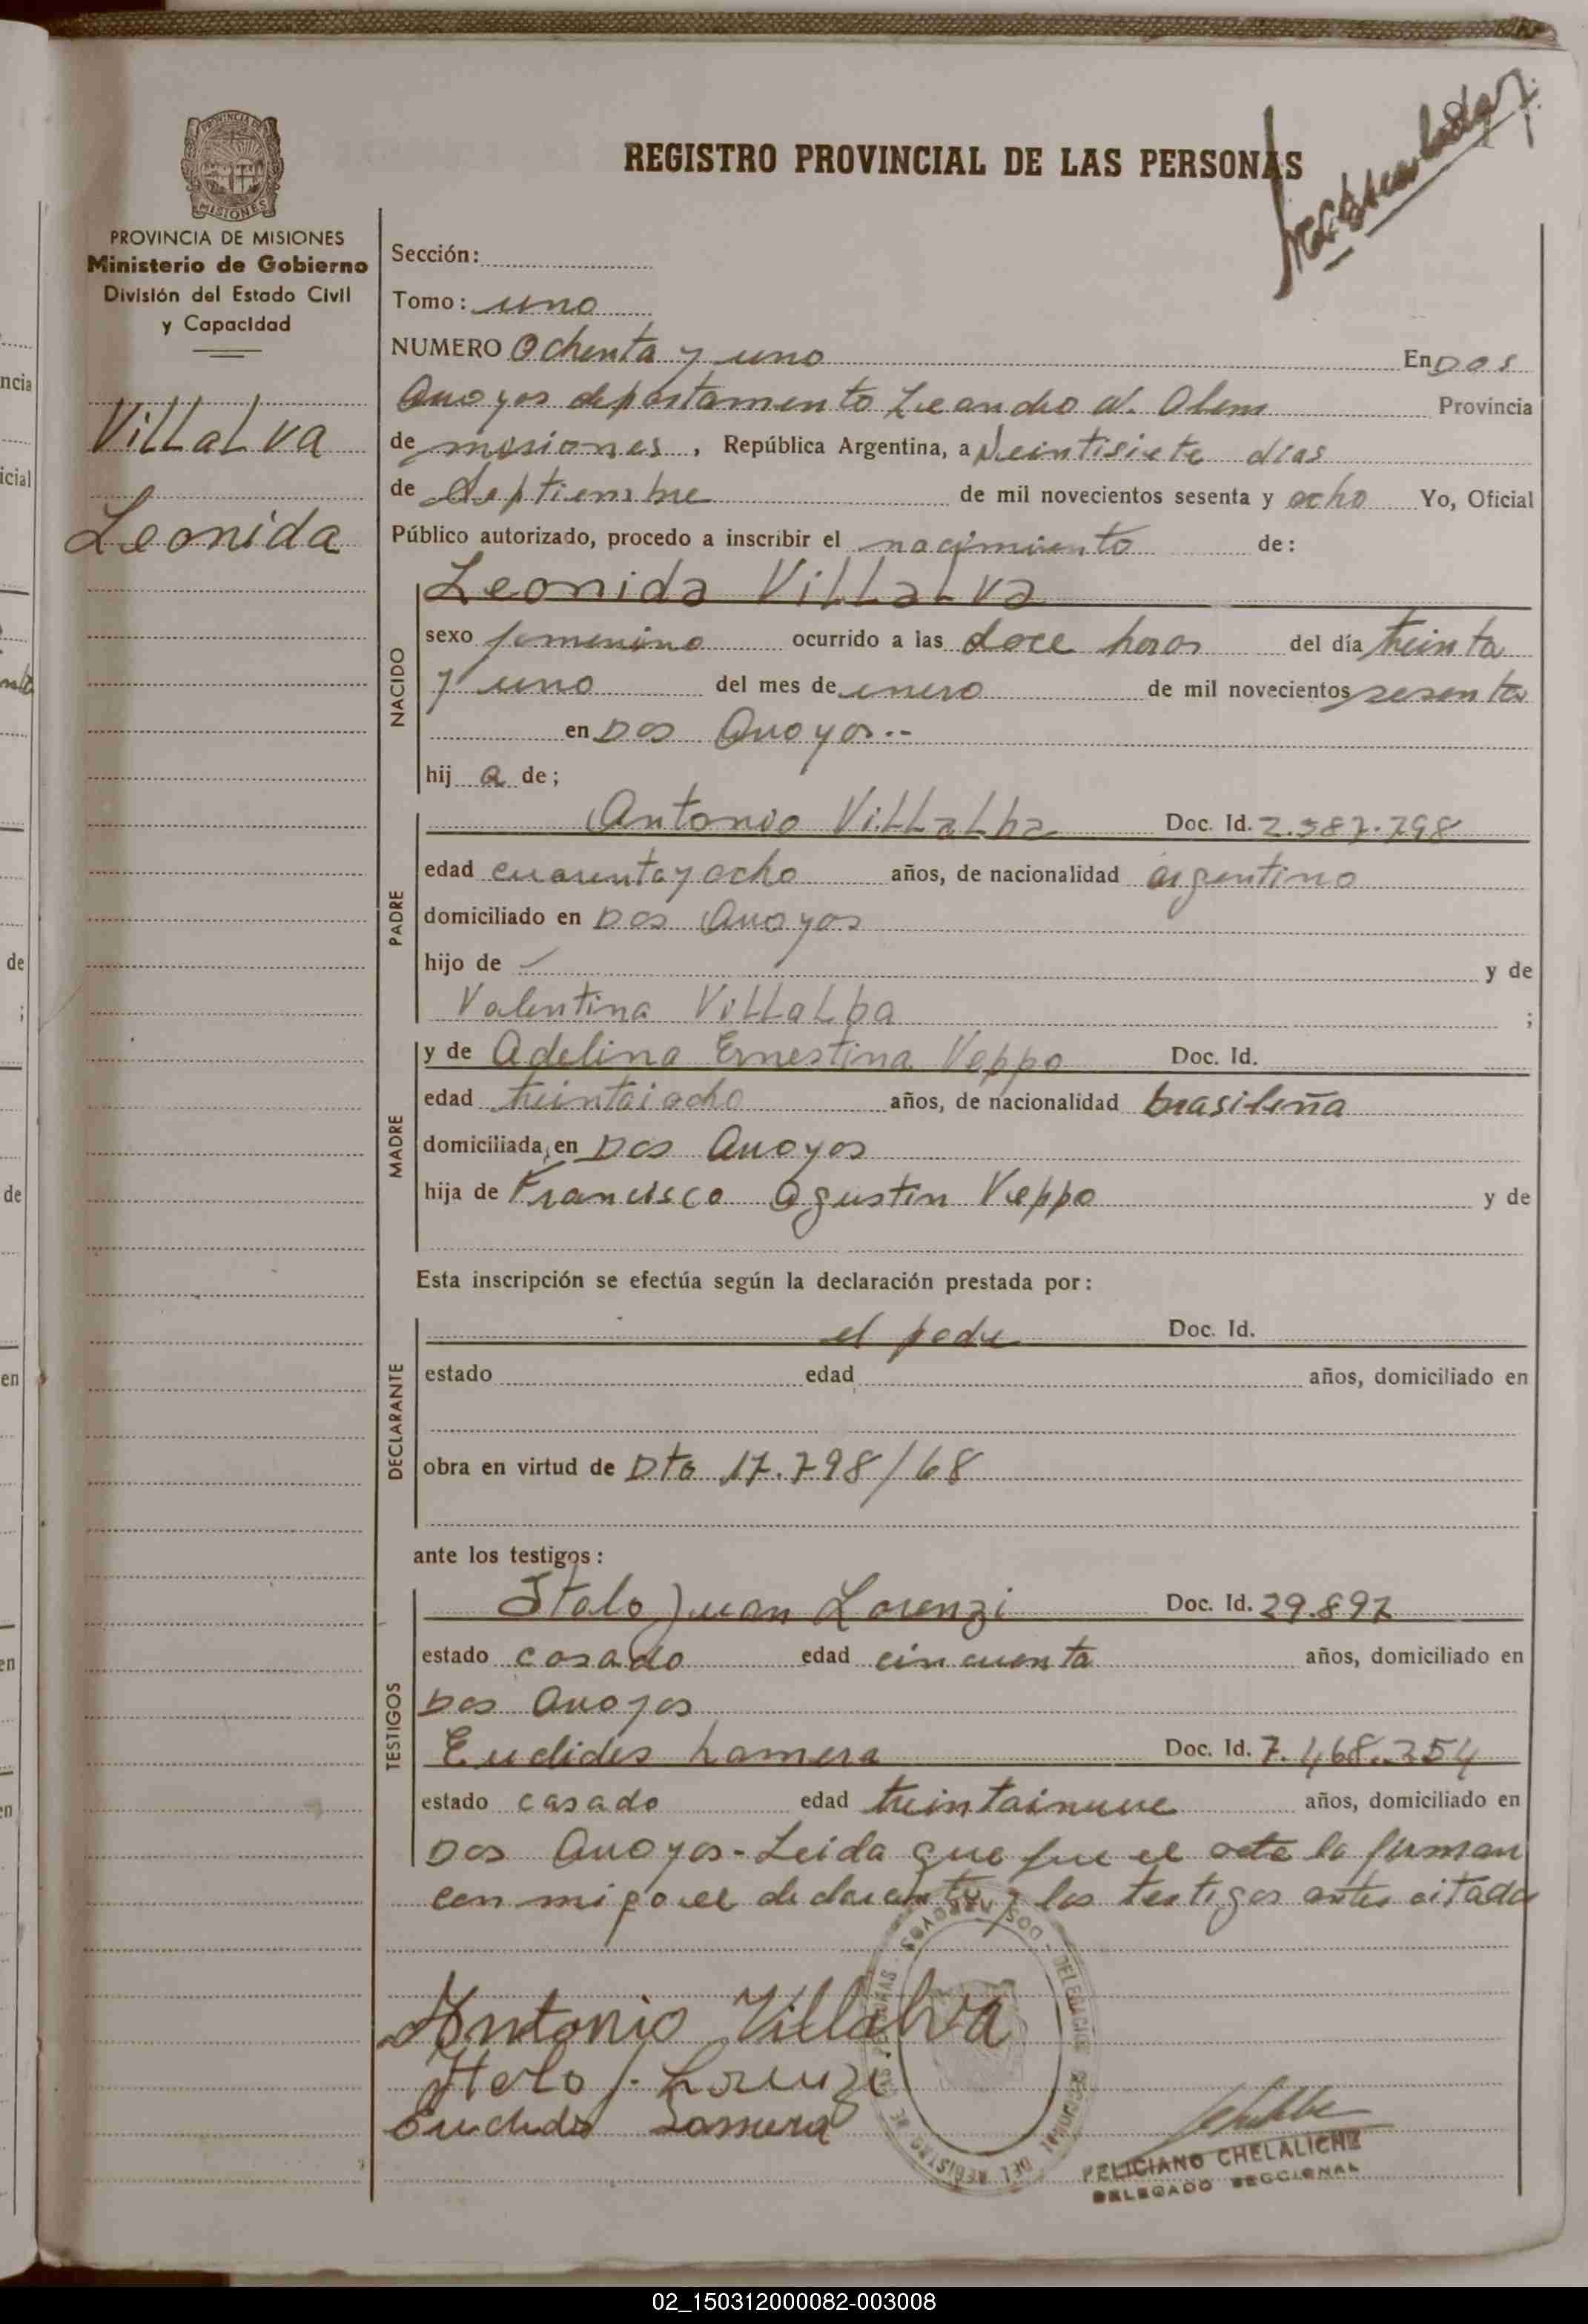 REGISTRO PROVINCIAL DE LAS PERSONAS
PROVINCIA DE MISIONES
Ministerio de Gobierno
División del Estado Civil
y Capacidad
VillaLva
Leonida
Sección:
Tomo: uno
NUMERO Ochenta y uno En Dos
Arroyos departamento Leandro N. Alem Provincia
de misiones, República Argentina, a Veintisiete días
de Septiembre de mil novecientos sesenta y ocho Yo, Oficial
Público autorizado, procedo a inscribir el nacimiento de:
NACIDO
Leonida VillaLva
sexo femenino ocurrido a las doce horas del día treinta
y uno del mes de enero de mil novecientos sesenta
en Dos Arroyos.--
hij a de;
PADRE
Antonio VillaLba Doc. Id. 2.587.798
edad cuarenta y ocho años, de nacionalidad argentino
domiciliado en Dos Arroyos
hijo de y de
Valentina VillaLba ;
MADRE
y de Adelina Ernestina Veppo Doc. Id.
edad treintaiocho años, de nacionalidad brasileña
domiciliada en Dos Arroyos
hija de Francisco Agustin Veppo y de
Esta inscripción se efectúa según la declaración prestada por:
DECLARANTE
el padre Doc. Id.
estado edad años, domiciliado en
obra en virtud de Dto 17.798/68
ante los testigos:
TESTIGOS
Italo Juan Lorenzi Doc. Id. 29.897
estado casado edad cincuenta años, domiciliado en
Dos Arroyos
Euclides Lamera Doc. Id. 7.468.254
estado casado edad treintainueve años, domiciliado en
Dos Arroyos - Leida que fue el acta la firman
con migo el declarante y los testigos antes citados
Antonio Villalva
Italo J. Lorenzi
Euclides Lamera
DOS ARROYOS - DELEGACION SECCIONAL DEL REGISTRO DE LAS PERSONAS
FELICIANO CHELALICHE
DELEGADO SECCIONAL
02_150312000082-003008